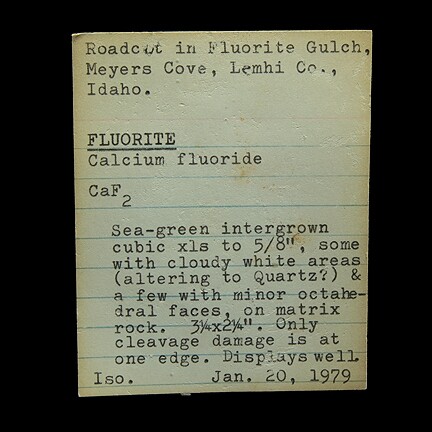 Roadcut in Fluorite Gulch,
Meyers Cove, Lemhi Co.,
Idaho.
FLUORITE
Calcium fluoride
CaF2
Sea-green intergrown
cubic xls to 5/8", some
with cloudy white areas
(altering to Quartz?) &
a few with minor octahe-
dral faces, on matrix
rock. 3¼x2¼". Only
cleavage damage is at
one edge. Displays well.
Iso. Jan. 20, 1979